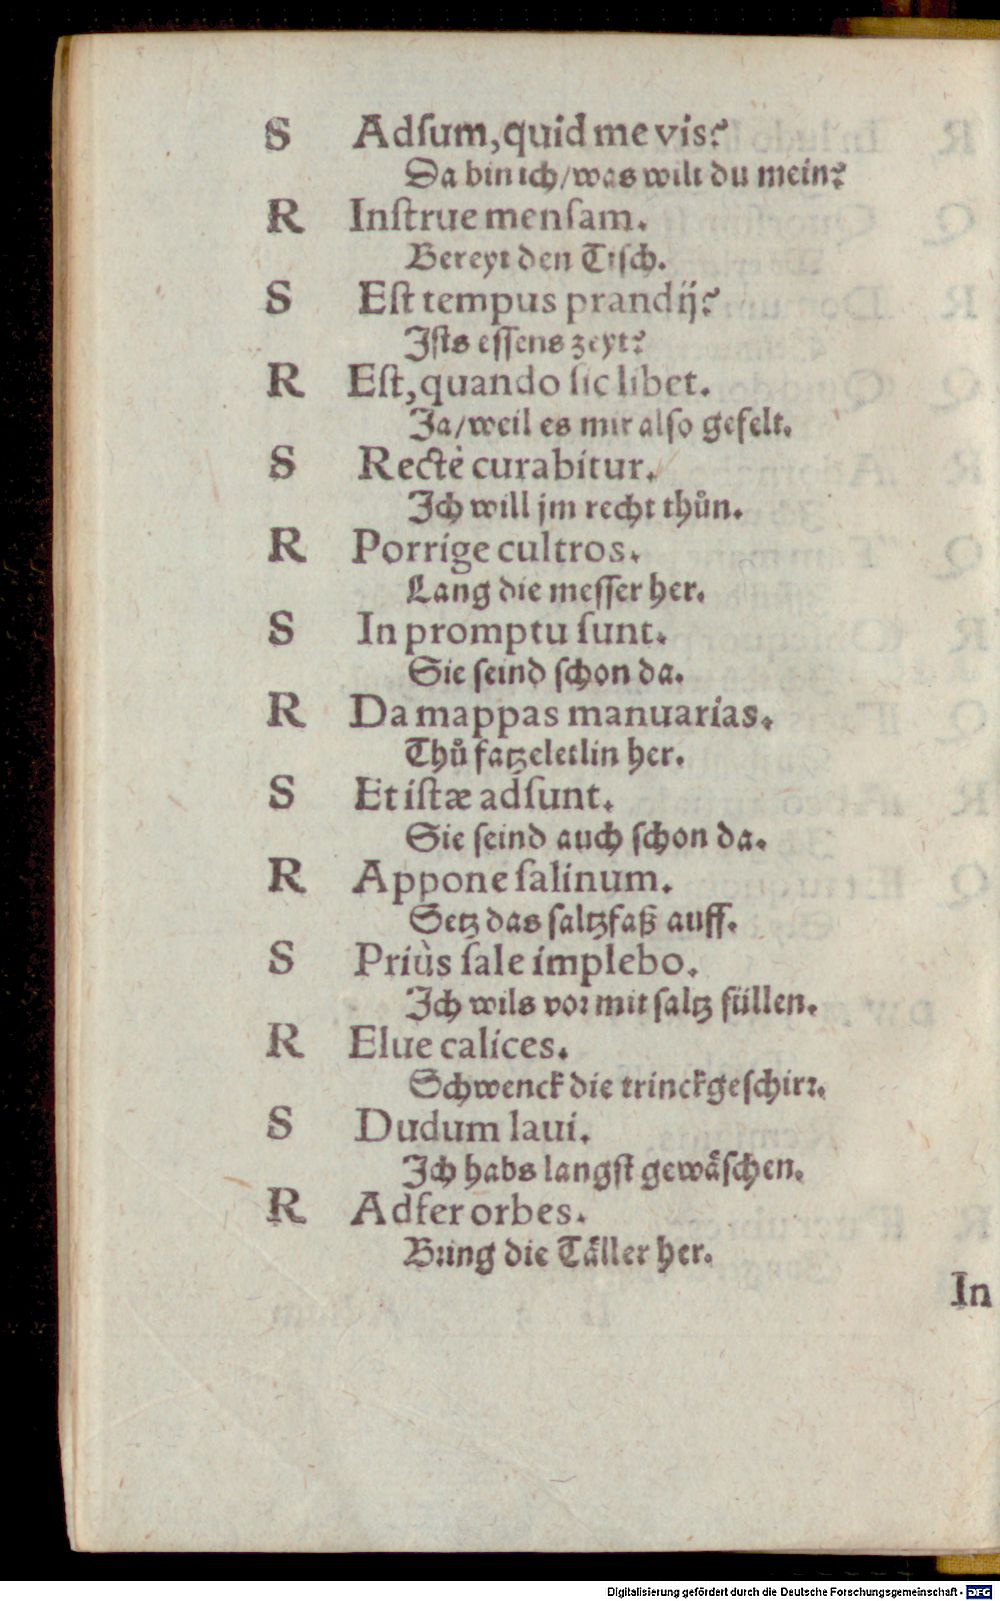 S Adſum, quid me vis?
Da bin ich/was wilt du mein?
R Inſtrue menſam.
Bereyt den Tiſch.
S Eſt tempus prandij?
Jſts eſſens zeyt?
R Eſt, quando ſic libet.
Ja/weil es mir alſo gefelt.
S Rectè curabitur.
Jch will jm recht thůn.
R Porrige cultros.
Lang die meſſer her.
S In promptu ſunt.
Sie ſeind ſchon da.
R Da mappas manuarias.
Thů fatzeletlin her.
S Et iſtæ adſunt.
Sie ſeind auch ſchon da.
R Appone ſalinum.
Setz das ſaltzfaß auff.
S Priùs ſale implebo.
Jch wils vor mit ſaltz füllen.
R Elue calices.
Schwenck die trinckgeſchirr.
S Dudum laui.
Jch habs langſt gewäſchen.
R Adfer orbes.
Bring die Täller her.
In
Digitalisierung gefördert durch die Deutsche Forschungsgemeinschaft - DFG